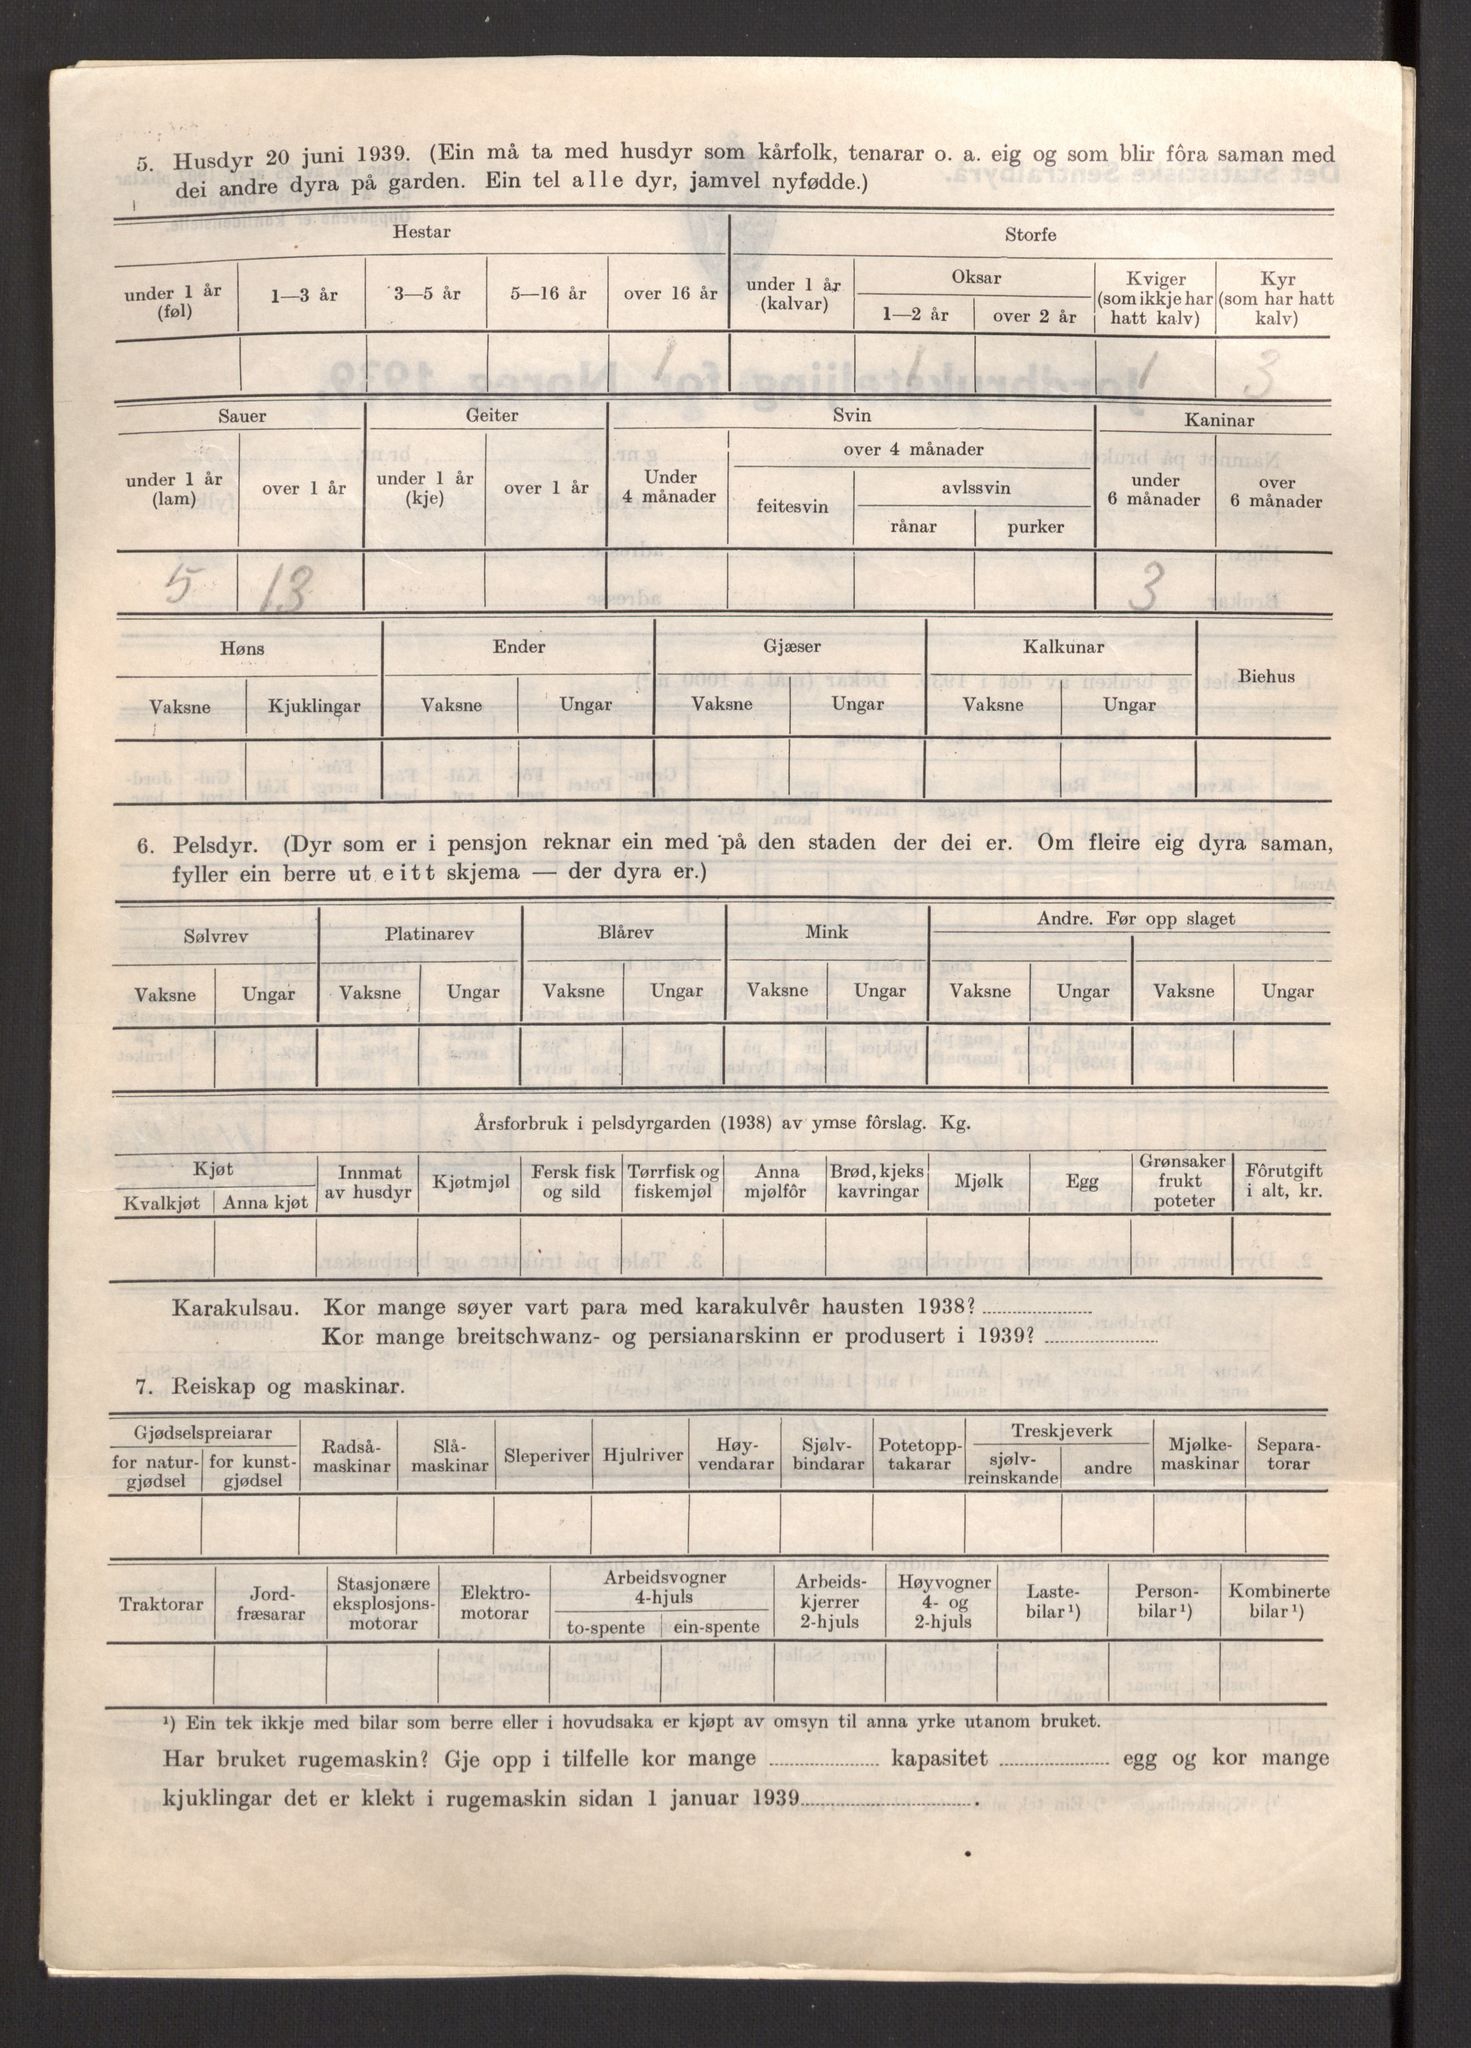 5. Husdyr 20 juni 1939. (Ein må ta med husdyr som kårfolk, tenarar o. a. eig og som blir fôra saman med
dei andre dyra på garden. Ein tel alle dyr, jamvel nyfødde.)
Hestar Storfe
under 1 år (føl) 1—3 år 3—5 år 5—16 år over 16 år under 1 år (kalvar) Oksar Kviger (som ikkje har hatt kalv) Kyr (som har hatt kalv)
1—2 år over 2 år
1 1 1 3
Sauer Geiter Svin Kaninar
under 1 år (lam) over 1 år under 1 år (kje) over 1 år Under 4 månader over 4 månader under 6 månader over 6 månader
feitesvin avlssvin
rånar purker
5 13 3
Høns Ender Gjæser Kalkunar Biehus
Vaksne Kjuklingar Vaksne Ungar Vaksne Ungar Vaksne Ungar
6. Pelsdyr. (Dyr som er i pensjon reknar ein med på den staden der dei er. Om fleire eig dyra saman,
fyller ein berre ut eitt skjema — der dyra er.)
Sølvrev Platinarev Blårev Mink Andre. Før opp slaget
Vaksne Ungar Vaksne Ungar Vaksne Ungar Vaksne Ungar Vaksne Ungar Vaksne Ungar
Årsforbruk i pelsdyrgarden (1938) av ymse fôrslag. Kg.
Kjøt Innmat av husdyr Kjøtmjøl Fersk fisk og sild Tørrfisk og fiskemjøl Anna mjølfôr Brød, kjeks kavringar Mjølk Egg Grønsaker frukt poteter Fôrutgift i alt, kr.
Kvalkjøt Anna kjøt
Karakulsau. Kor mange søyer vart para med karakulvêr hausten 1938?
Kor mange breitschwanz- og persianarskinn er produsert i 1939?
7. Reiskap og maskinar.
Gjødselspreiarar Radså-maskinar Slå-maskinar Sleperiver Hjulriver Høy-vendarar Sjølv-bindarar Potetopp-takarar Treskjeverk Mjølke-maskinar Separa-torar
for natur-gjødsel for kunst-gjødsel sjølv-reinskande andre
Traktorar Jord-fræsarar Stasjonære eksplosjons-motorar Elektro-motorar Arbeidsvogner 4-hjuls Arbeids-kjerrer 2-hjuls Høyvogner 4- og 2-hjuls Laste-bilar¹) Person-bilar¹) Kombinerte bilar¹)
to-spente ein-spente
¹) Ein tek ikkje med bilar som berre eller i hovudsaka er kjøpt av omsyn til anna yrke utanom bruket.
Har bruket rugemaskin? Gje opp i tilfelle kor mange kapasitet egg og kor mange
kjuklingar det er klekt i rugemaskin sidan 1 januar 1939.